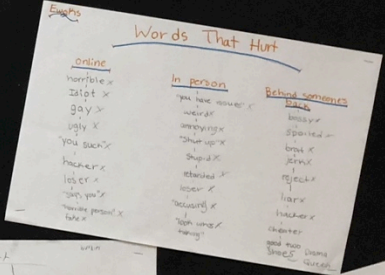 Words That Hurt
online
horrible x
Idiot x
gay x
ugly x
"you suck" x
hacker x
loser x
x
"horrible person" x
fake x
In person
"you have x
weird x
annoying x
"shut up" x
stupid x
retarded x
loser x
x
Behind someones
back
bossy x
spoiled x
brat x
jerk x
reject x
liar x
hacker x
cheater
good two Drama
shoes Queen